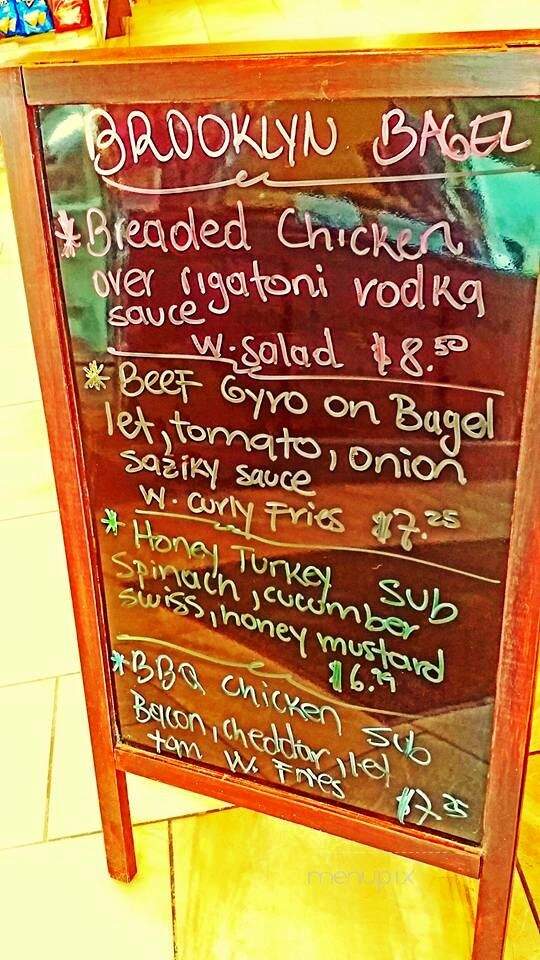 BROOKLYN BAGEL
*Breaded Chicken
over rigatoni vodka
sauce
W. Salad $8.50
*Beef Gyro on Bagel
let, tomato, onion
saziky sauce
W. curly Fries $7.25
*Honey Turkey Sub
Spinach, cucumber
swiss, honey mustard
$6.99
*BBQ chicken Sub
Bacon, cheddar, let
tom W. Fries $7.25
menupix